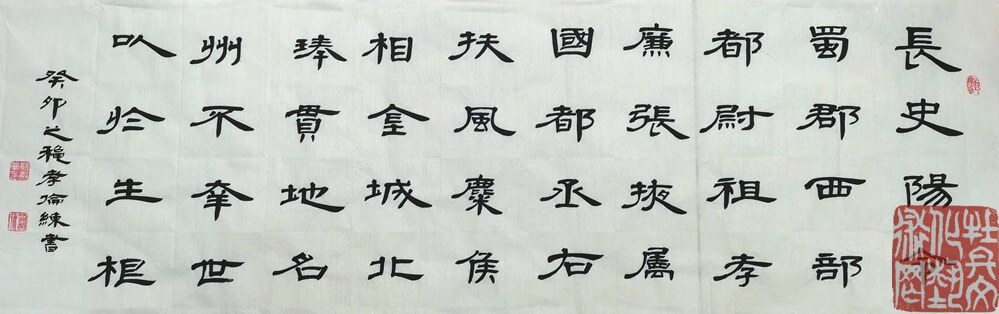 長史陽
蜀郡西部
都尉祖孝
廉張掖屬
國都丞右
扶風麋侯
相金城北
琫貫地名
州不幸世
以於生
癸卯之穐孝倫練書